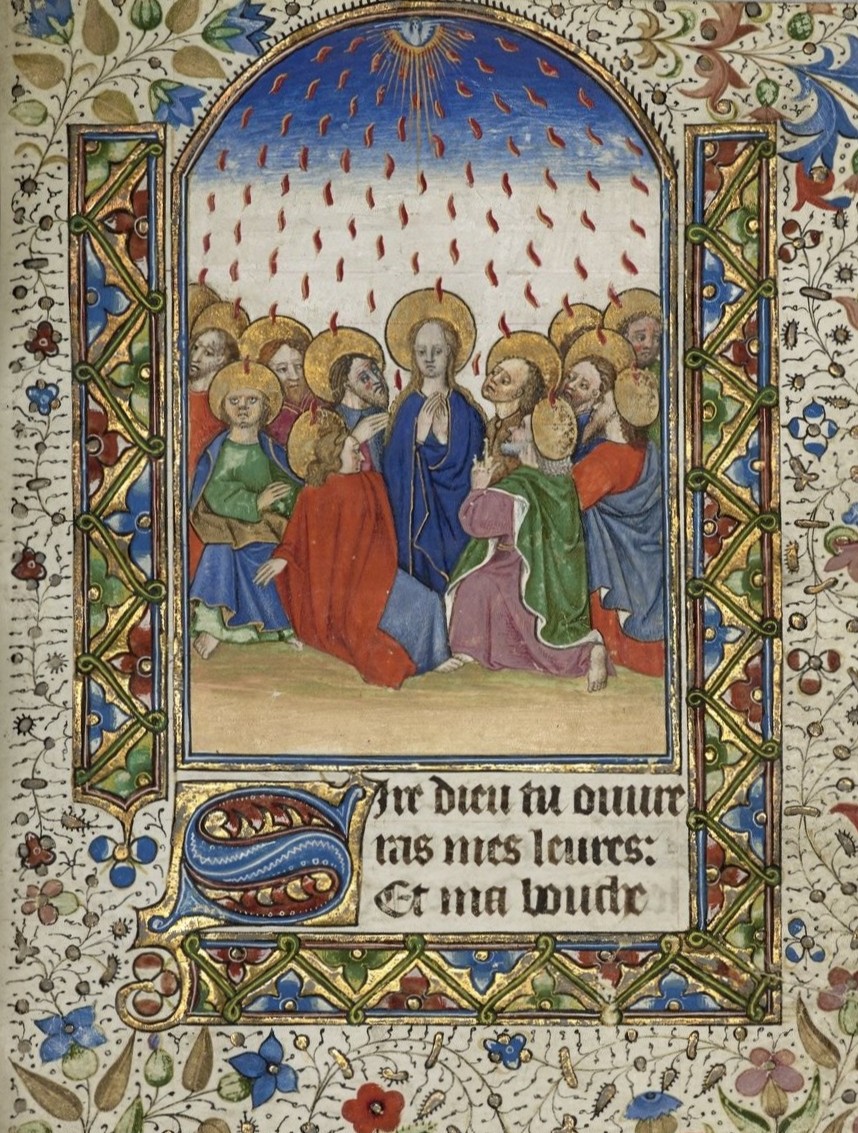 Sire dieu tu ouure
ras mes leures:
Et ma bouche